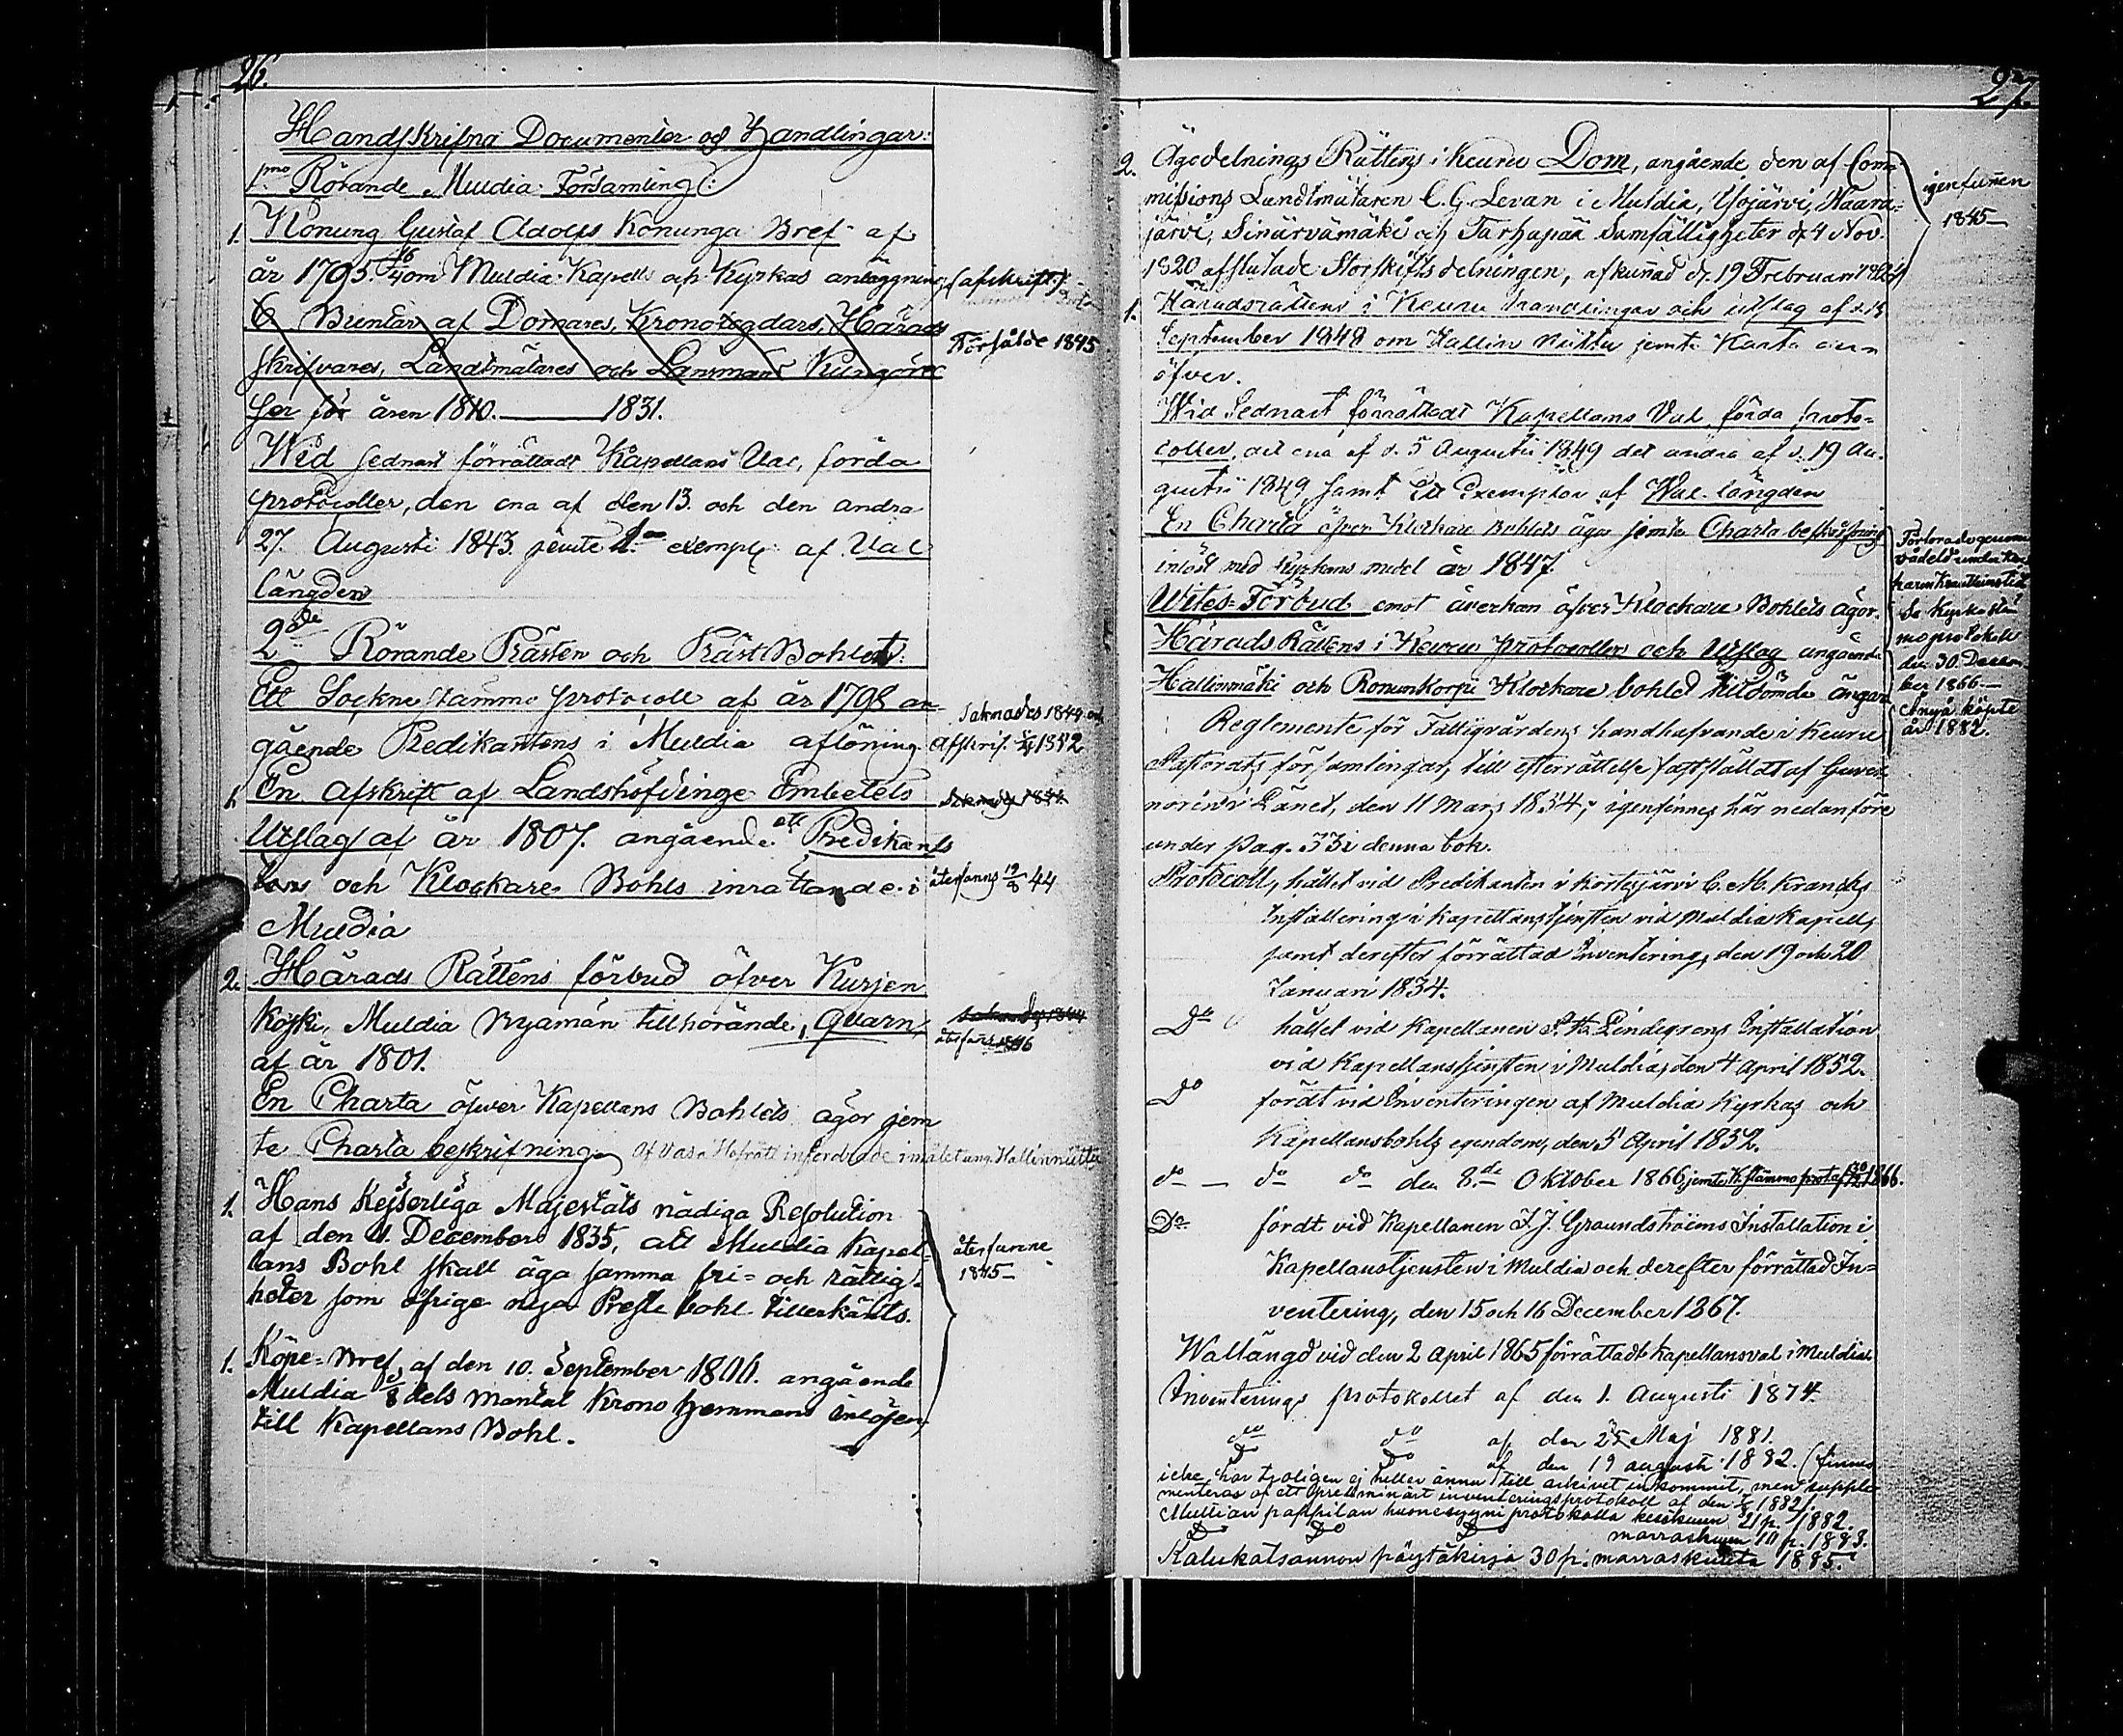 26.
Handskrifna Documenter och Handlingar:
1mo Rörande Muldia Församling:
1. Konung Gustaf Adolfs Konunga Bref af
år 1795 16/4 om Muldia Kapells och Kyrkas anläggning (afskrift)
6 Buntar af Domares, Kronofogdars, Härads
skrifvares, Landtmätares och Länsmans Kungörel
Försålde 1845
ser för åren 1810. 1831.
Wid sednast förrättadt Kapellans Val, förda
protocoller, den ena af den 13. och den andra
27. Augusti 1843. jemte exempl. af Val
längden
2de Rörande Prästen och Präst Bohlet:
Ett Sockne stämmo protocoll af år 1798 an
Saknades 1844
gående Predikantens i Muldia aflöning.
Afskrif. 1852
1. En afskrift af Landshöfdinge Embetets
Saknades 1844
Utslag af år 1807. angående ett Predikants
och Klockare Bohls inrättande i
återfanns 19/8 44
Muldia
2. Härads Rättens förbud öfver Kurjen
koski, Muldia Byamän tillhörande, Qvarn,
Saknades 1844
återfans 1846
af år 1801.
En Charta öfwer Kapellans Bohlets ägor jem
te Charta beskrifning Af Vasa Hofrätt infordrade i målet ang. Hallinniittu
1. Hans Kejserliga Majestäts nådiga Resolution
af den 11. December 1835, att Muldia Kapel-
lans Bohl skall äga samma fri- och rättig-
heter som öfrige nya Preste bohl tillerkänts.
återfunne
1845
1. Köpe-Bref, af den 10. September 1806. angående
Muldia 3/8 dels Mantal Krono hemmans inlösen,
till Kapellans Bohl.
27.
2. Ägodelnings Rättens i Keuru Dom, angående den af Com-
missions Landtmätaren C. G. Levan i Muldia, Ylojärvi, Haara-
igenfunnen
1845
järvi, Sinärvämäki och Tarhapää Samfälligheter d. 4 Nov.
1820 afslutade Storskiftsdelningen, afkunnad d. 19 Februari
1. Häradsrättens i Keuru handlingar och utslag af d. 13
September 1848 om Hallin Niittu jemte Karta der
öfver.
Wid Sednast förrättadt Kapellans Val förda proto-
coller, det ena af d. 5 Augusti 1849 det andra af d. 19 Au-
gusti 1849 samt ett Exemplar af Wal-längden
En Charta öfver Klockare Bohlets ägor jemte Charta beskrifning
inlöst med Kyrkans medel år 1847.
Wites-Förbud emot åverkan öfver Klockare Bohlets ägor.
Härads Rättens i Keuru protocoller och Utslag angående
Hallinmäki och Ronunkorpi Klockare bohlet tilldömde ängar
Förlorades genom
vådeld under ka
Se Kyrkostäm
moprotokoll
den 30. Decem
ber 1866
nya köpte
år 1882.
Reglemente för Fattigvårdens handhafvande i Keuru
Pastorats församlingar, till efterrättelse fastställdt af Guver-
nören i Länet, den 11 Mars 1834; igenfinnes här nedanföre
under pag. 33 i denna bok.
Protocoll, hållet vid Predikanten i Kortesjärvi C. M. Krancks
Installering i Kapellanstjensten vid Muldia Kapell,
samt derefter förrättad Inventering, den 19 och 20
Januari 1834.
Do hållet vid Kapellanen Lindegrens Installation
vid Kapellanstjensten i Muldia, den 4 April 1852.
Do fördt vid Inventeringen af Muldia Kyrkas och
Kapellansbohls egendom, den 5 April 1852.
do — do do den 8de Oktober 1866 jemte K.stämmo prot. af 30/12 1866.
Do fördt vid Kapellanen J. J. Graundströms Installation i
Kapellanstjensten i Muldia och derefter förrättad In-
ventering, den 15 och 16 December 1867.
Wallängd vid den 2 April 1865 förrättadt Kapellansval i Muldia.
Inventerings protokollet af den 1. Augusti 1874.
do do af den 25 Maj 1881.
Do Do af den 19 augusti 1882. (finnes
icke har troligen ej heller ännu till arkivet inkommit, men supple
menteras af ett preliminärt inventeringsprotokoll af den 1882).
Multian pappilan huonesyyni protokolla kesäkuun 21 p. 1882.
Do Do Do marraskuun 10 p. 1883.
Kalukatsannon pöytäkirja 30 p. marraskuuta 1885.